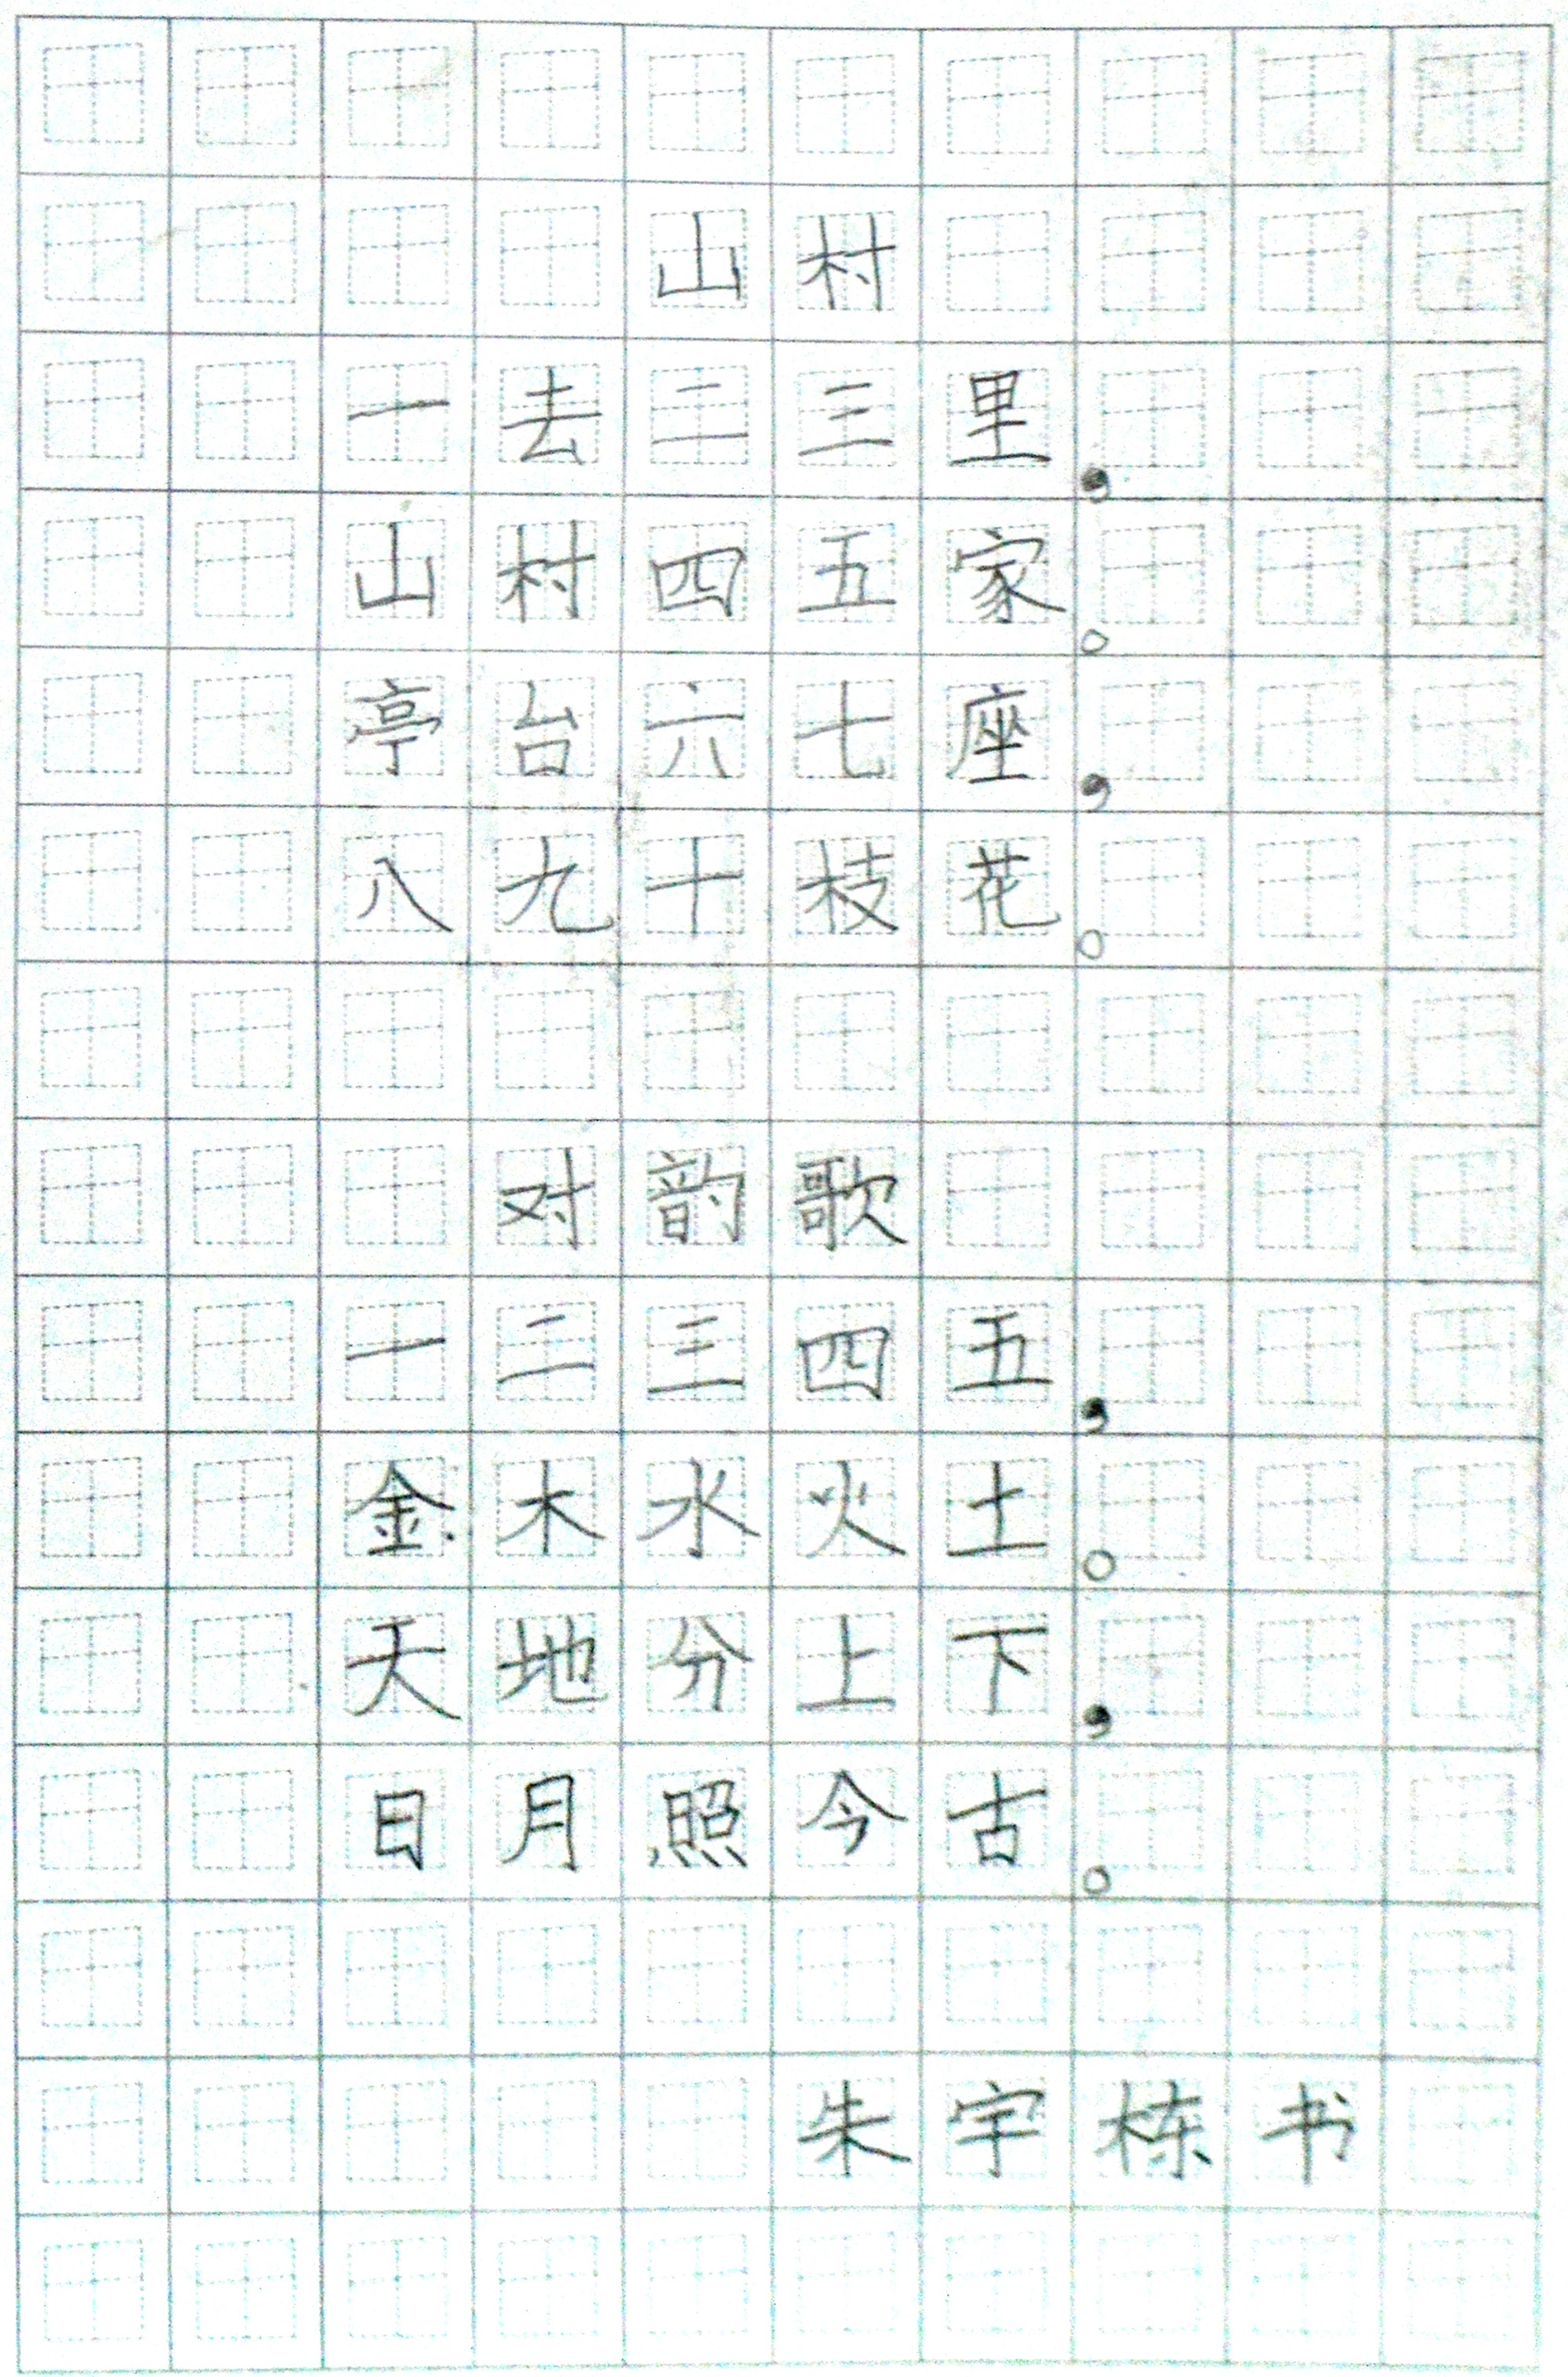 山村
一去二三里，
山村四五家。
亭台六七座，
八九十枝花。
对韵歌
一二三四五，
金木水火土。
天地分上下，
日月照今古。
朱宇栋书